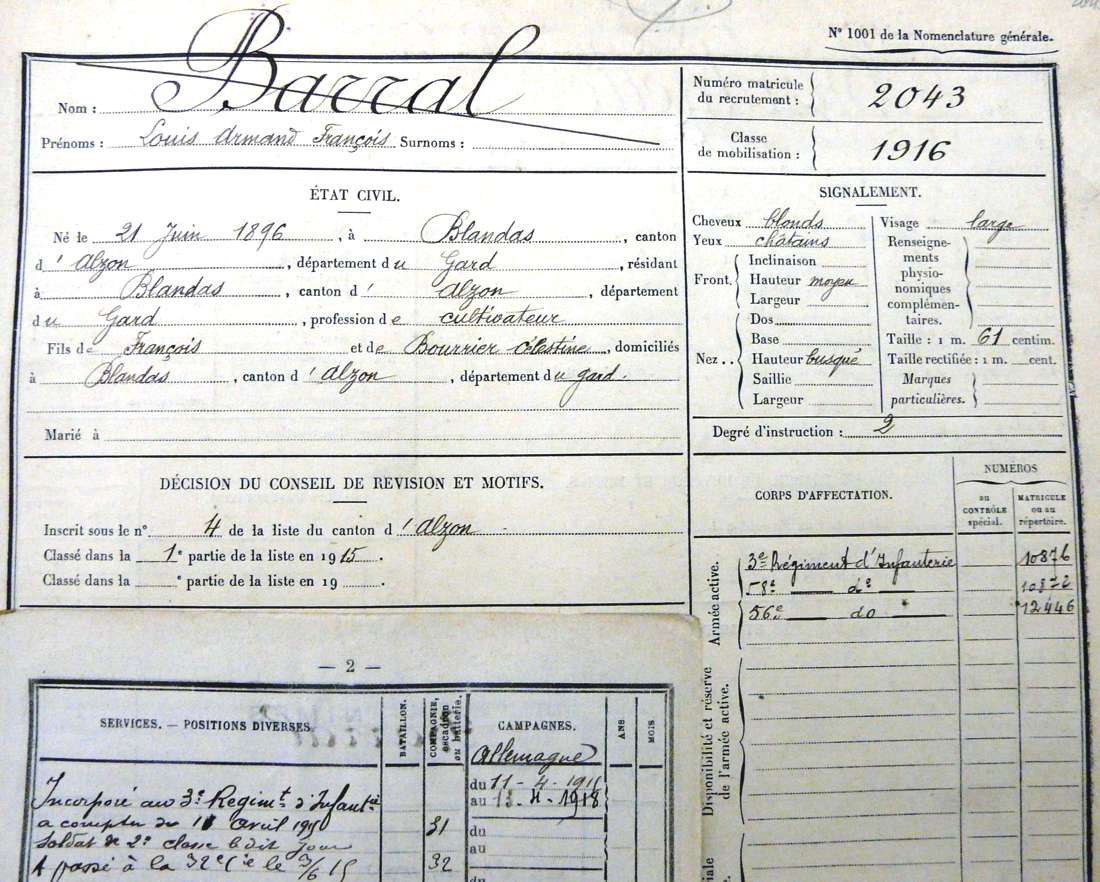 N° 1001 de la Nomenclature générale.
Nom : Barral
Prénoms : Louis Armand François Surnoms :
Numéro matricule du recrutement : 2043
Classe de mobilisation : 1916
ÉTAT CIVIL.
Né le 21 Juin 1896, à Blandas, canton
d'Alzon, département du Gard, résidant
à Blandas, canton d'Alzon, département
du Gard, profession de cultivateur
Fils de François et de Bourrier Célestine, domiciliés
à Blandas, canton d'Alzon, département du Gard.
Marié à
SIGNALEMENT.
Cheveux blonds
Yeux châtains
Front.
Inclinaison
Hauteur moyen
Largeur
Nez..
Dos
Base
Hauteur busqué
Saillie
Largeur
Visage large
Renseigne-
ments
physio-
nomiques
complémen-
taires.
Taille : 1 m. 61 centim.
Taille rectifiée : 1 m. cent.
Marques
particulières.
Degré d'instruction : 2
DÉCISION DU CONSEIL DE REVISION ET MOTIFS.
Inscrit sous le n° 4 de la liste du canton d'Alzon
Classé dans la 1e partie de la liste en 1915.
Classé dans la e partie de la liste en 19 .
CORPS D'AFFECTATION.
NUMÉROS
au
CONTRÔLE
spécial.
MATRICULE
ou au
répertoire.
Armée active.
3e Régiment d'Infanterie 10876
58e do 10872
56e do 12446
Disponibilité et réserve
de l'armée active.
— 2 —
SERVICES. — POSITIONS DIVERSES
BATAILLON.
COMPAGNIE,
escadron
ou batterie.
CAMPAGNES.
ANS.
MOIS
Allemagne
du 11 - 4 - 191
au 13 - 4 - 1918
du
au
du
Incorporé au 3e Regimt d'Infantie
a compter du 11 avril 191
Soldat de 2e classe le dit jour
31
A passé à la 32e Cie le 3/6 15
32